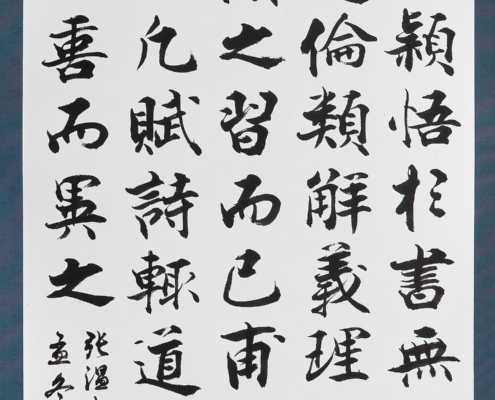 穎悟於書無
倫類解義理
之習而已甫
凡賦詩輒道
喜而異之
张温
孟冬